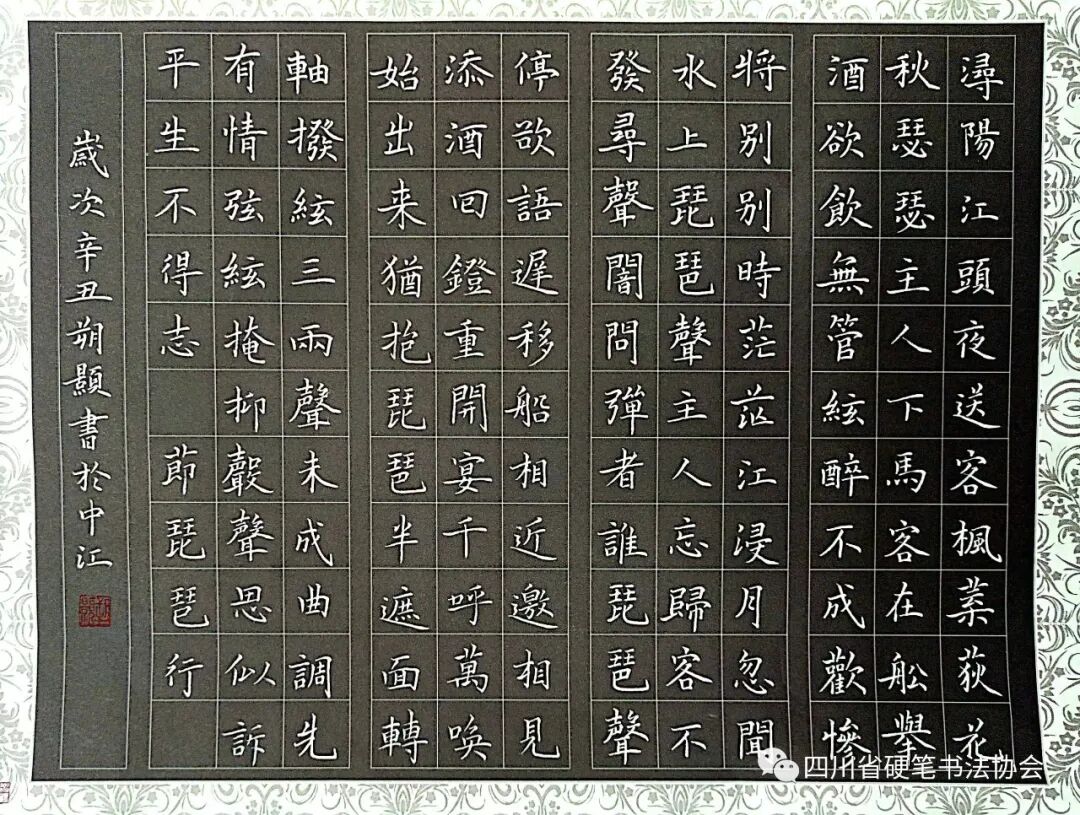 潯陽江頭夜送客楓葉荻花
秋瑟瑟主人下馬客在舩舉
酒欲飲無管絃醉不成歡慘
将别别時茫茫江浸月忽聞
水上琵琶聲主人忘歸客不
發尋聲闇問彈者誰琵琶聲
停欲語遲移船相近邀相見
添酒回鐙重開宴千呼萬喚
始出来猶抱琵琶半遮面轉
軸撥絃三兩聲未成曲調先
有情弦絃掩抑聲聲思似訴
平生不得志 節琵琶行
歲次辛丑朔顯書於中江
四川省硬笔书法协会